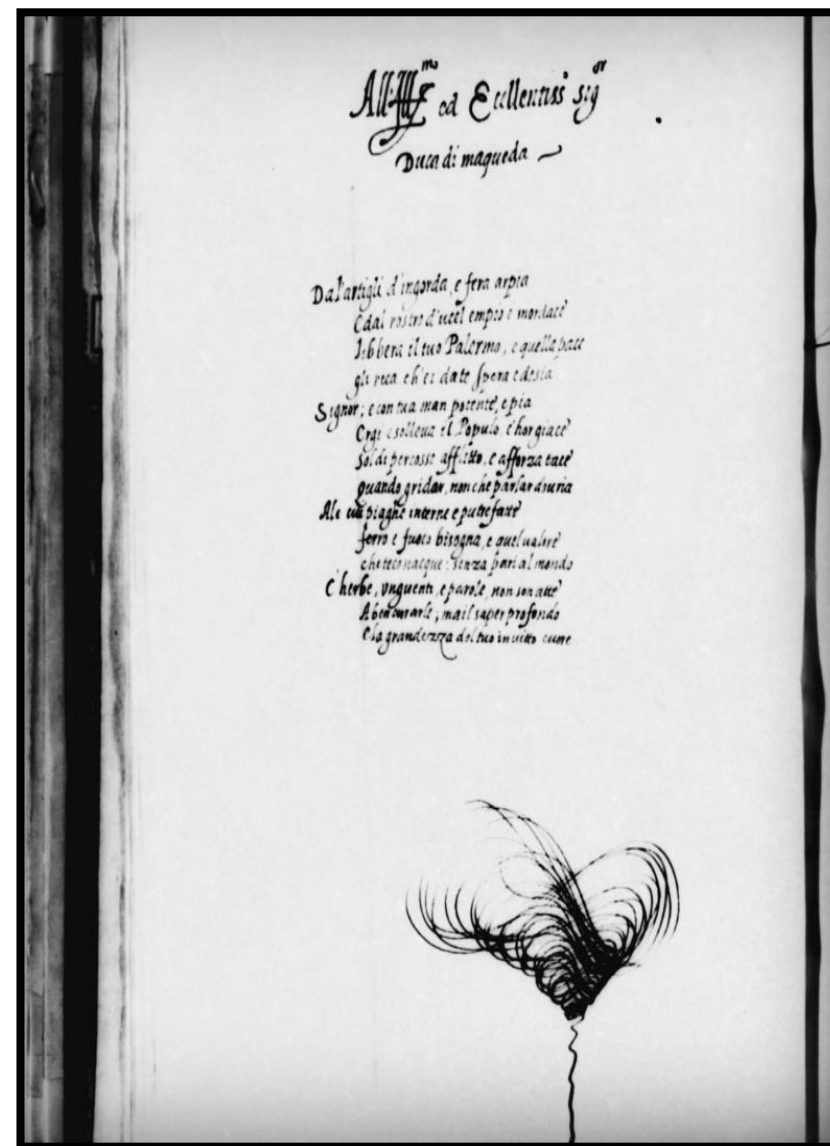 All'Ill.mo ed Eccellentiss.o Sigor
Duca di maqueda
Da l'artigli d'ingorda, e fera arpia
E dal rostro d'ucel empio e mordace
Libbera il tuo Palermo, e quella pace
gli reca ch'ei da te spera e desia
Signor; e con tua man potente, e pia
Ergi e solleva il Populo c'hor giace
Sol di percosse afflitto, e afforza tace
quando gridar, non che parlar douria
A le piaghe interne e putrefatte
ferro e fuoco bisogna, e quel valore
che teco nacque: senza pari al mondo
C'herbe, unguenti, e parole, non son atte
A ben curarle; ma il saper profondo
E la grandezza del tuo invitto cuore